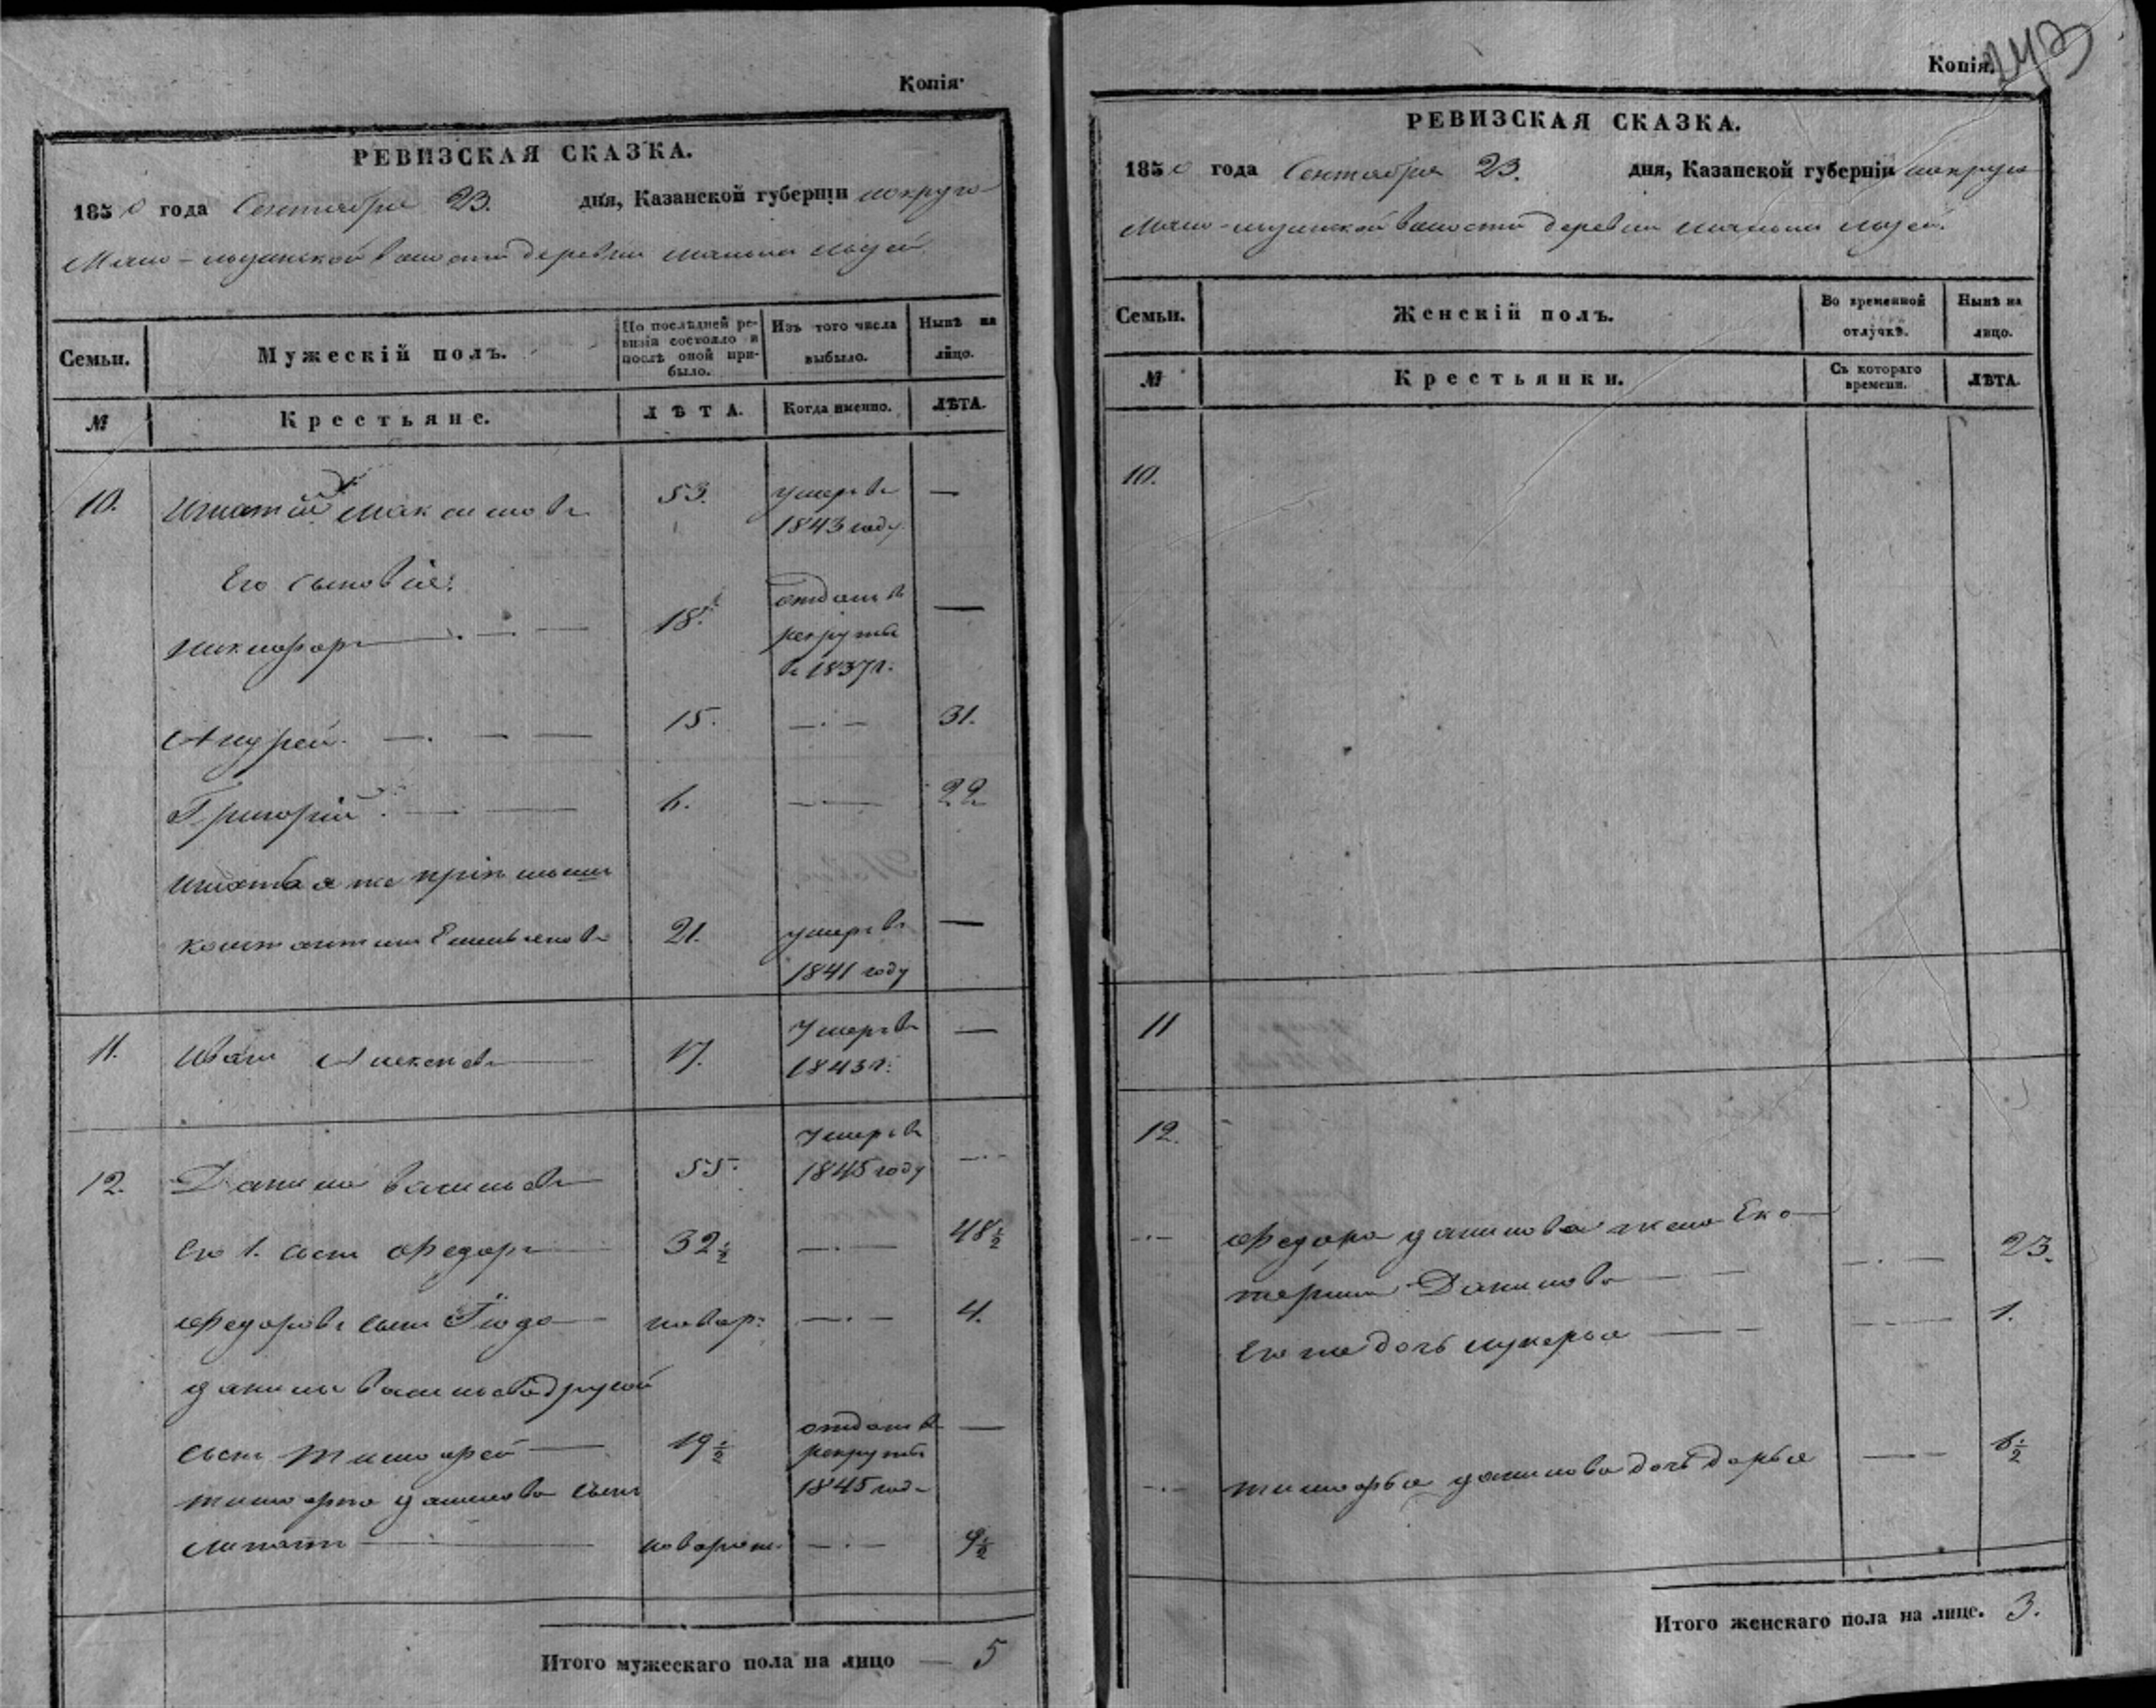 Копія.
РЕВИЗСКАЯ СКАЗКА.
1850 года Сентября 23. дня, Казанской губерніи
волости деревни
Семьи.
Мужескій полъ.
По послѣдней ре-
визіи состояло и
послѣ оной при-
было.
Изъ того числа
выбыло.
Нынѣ на
лицо.
№
Крестьяне.
ЛѢТА.
Когда именно.
ЛѢТА.
10. Игнатий Максимовъ 53. умеръ въ —
1843 году.
Его сыновіе:
Никифоръ — . — — 18. отданъ въ —
рекруты
въ 1837 г.
Андрей. — . — — 15. — . — 31.
Григорій. — — 6. — . — 22
Игнатья же
Константинъ Емельяновъ 21. умеръ въ —
1841 году
11. Иванъ Алексѣевъ — 17. Умеръ въ —
1843 г.
12. Данило Васильевъ — 55. Умеръ въ — . —
1845 году
Его 1. сынъ Федоръ — 32 1/2 — . — 48 1/2
Федоровъ сынъ — новор: — . — 4.
Данилы Васильева другой
сынъ Тимофей — 19 1/2 отданъ въ —
рекруты
1845 год
Тимофея Данилова сынъ
Липатъ — новорож. — . — 9 1/2
Итого мужескаго пола на лицо — 5
Копія.
243
РЕВИЗСКАЯ СКАЗКА.
1850 года Сентября 23. дня, Казанской губерніи
волости деревни
Семьи.
Женскій полъ.
Во временной
отлучкѣ.
Нынѣ на
лицо.
№
Крестьянки.
Съ котораго
времени.
ЛѢТА.
10.
11
12.
Федора Данилова жена Ека-
терина Данилова — — — . — 23.
Его же дочь Лукерья — — — — 1.
Тимофея Данилова дочь Дарья — — 6 1/2
Итого женскаго пола на лице. 3.